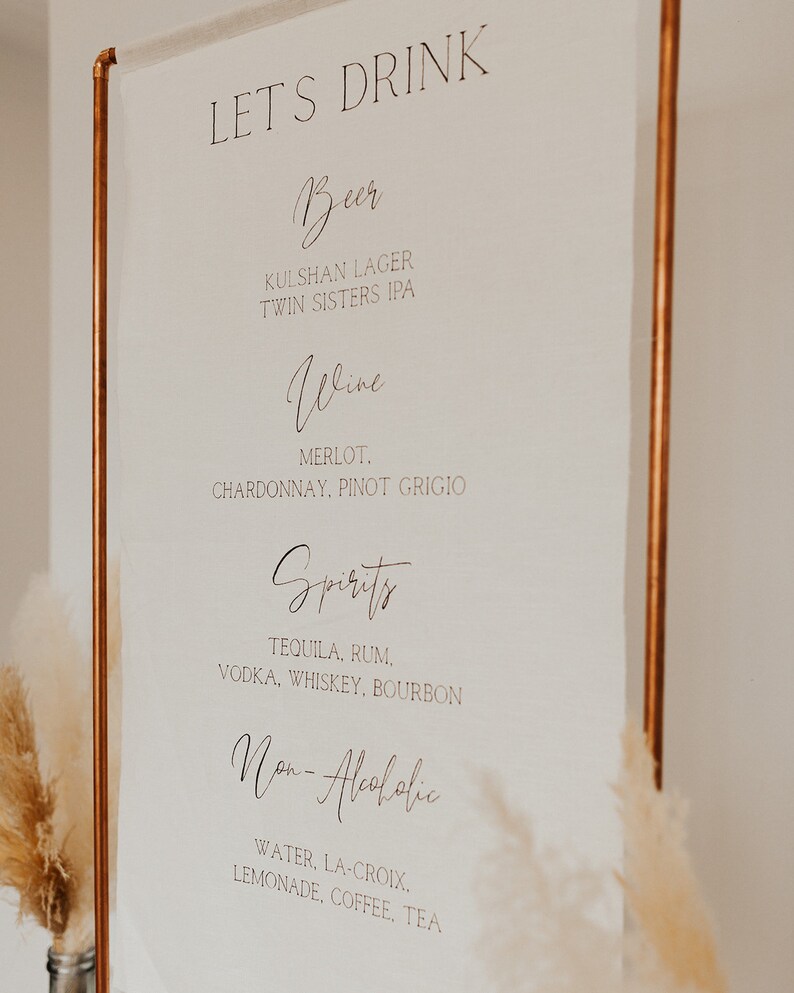 LETS DRINK
Beer
KULSHAN LAGER
TWIN SISTERS IPA
Wine
MERLOT,
CHARDONNAY, PINOT GRIGIO
Spirits
TEQUILA, RUM,
VODKA, WHISKEY, BOURBON
Non-Alcoholic
WATER, LA-CROIX,
LEMONADE, COFFEE, TEA